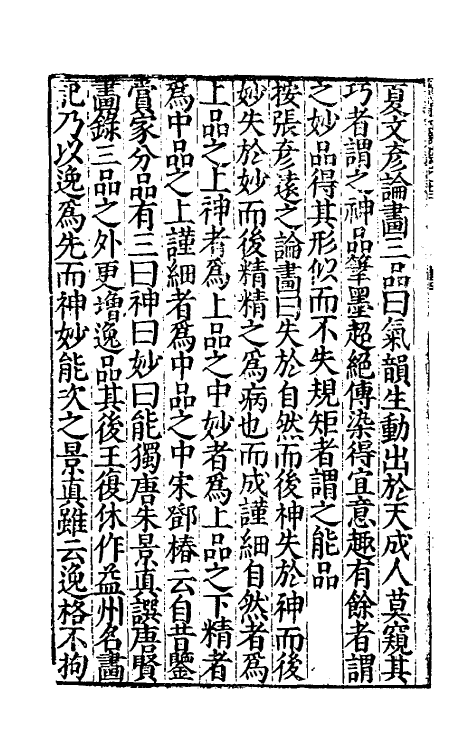 夏文彥論畫三品曰氣韻生動出於天成人莫窺其
巧者謂之神品筆墨超絕傅染得宜意趣有餘者謂
之妙品得其形似而不失規矩者謂之能品
按張彥遠之論畫曰失於自然而後神失於神而後
妙失於妙而後精精之為病也而成謹細自然者為
上品之上神者為上品之中妙者為上品之下精者
為中品之上謹細者為中品之中宋鄧椿云自昔鑒
賞家分品有三曰神曰妙曰能獨唐朱景真譔唐賢
畫錄三品之外更增逸品其後王復休作益州名畫
記乃以逸為先而神妙能次之景真雖云逸格不拘